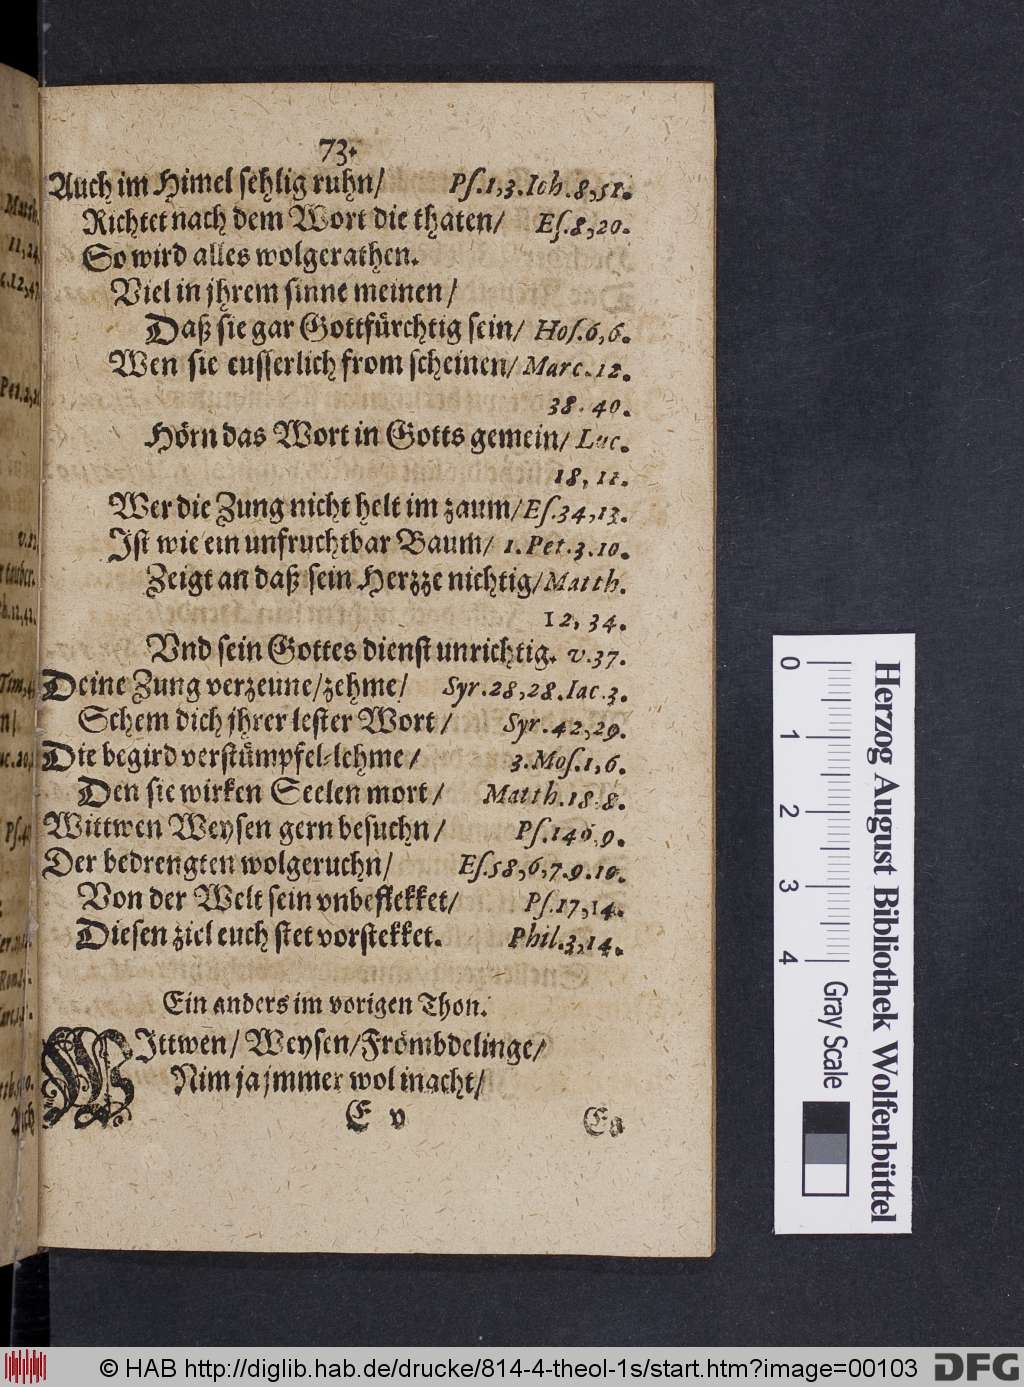 73.
Auch im Himel sehlig ruhn/ Pſ.1,3.Ioh.8,51.
Richtet nach dem Wort die thaten/ Eſ.8,20.
So wird alles wolgerathen.
Viel in jhrem sinne meinen/
Daß sie gar Gottfürchtig sein/ Hoſ.6,6.
Wen sie eusserlich from scheinen/ Marc.12.
38.40.
Hörn das Wort in Gotts gemein/ Luc.
18,11.
Wer die Zung nicht helt im zaum/ Eſ.34,13.
Ist wie ein unfruchtbar Baum/ 1.Pet.3.10.
Zeigt an daß sein Herzze nichtig/ Matth.
12,34.
Vnd sein Gottes dienst unrichtig. v.37.
Deine Zung verzeune/zehme/ Syr.28,28.Iac.3.
Schem dich jhrer lester Wort/ Syr.42,29.
Die begird verstümpfel-lehme/ 3.Moſ.1,6.
Den sie wirken Seelen mort/ Matth.18.8.
Wittwen Weysen gern besuchn/ Pſ.146,9.
Der bedrengten wolgeruchn/ Eſ.58,6,7.9.10.
Von der Welt sein vnbeflekket/ Pſ.17,14.
Diesen ziel euch stet vorstekket. Phil.3,14.
Ein anders im vorigen Thon.
WIttwen/ Weysen/Frömbdelinge/
Nim ja jmmer wol inacht/
E v
Matth.
11,24
Pet.2,
v.
Tim,4
Pſ.4
Auch
0 1 2 3 4
Gray Scale
Herzog August Bibliothek Wolfenbüttel
© HAB http://diglib.hab.de/drucke/814-4-theol-1s/start.htm?image=00103
DFG